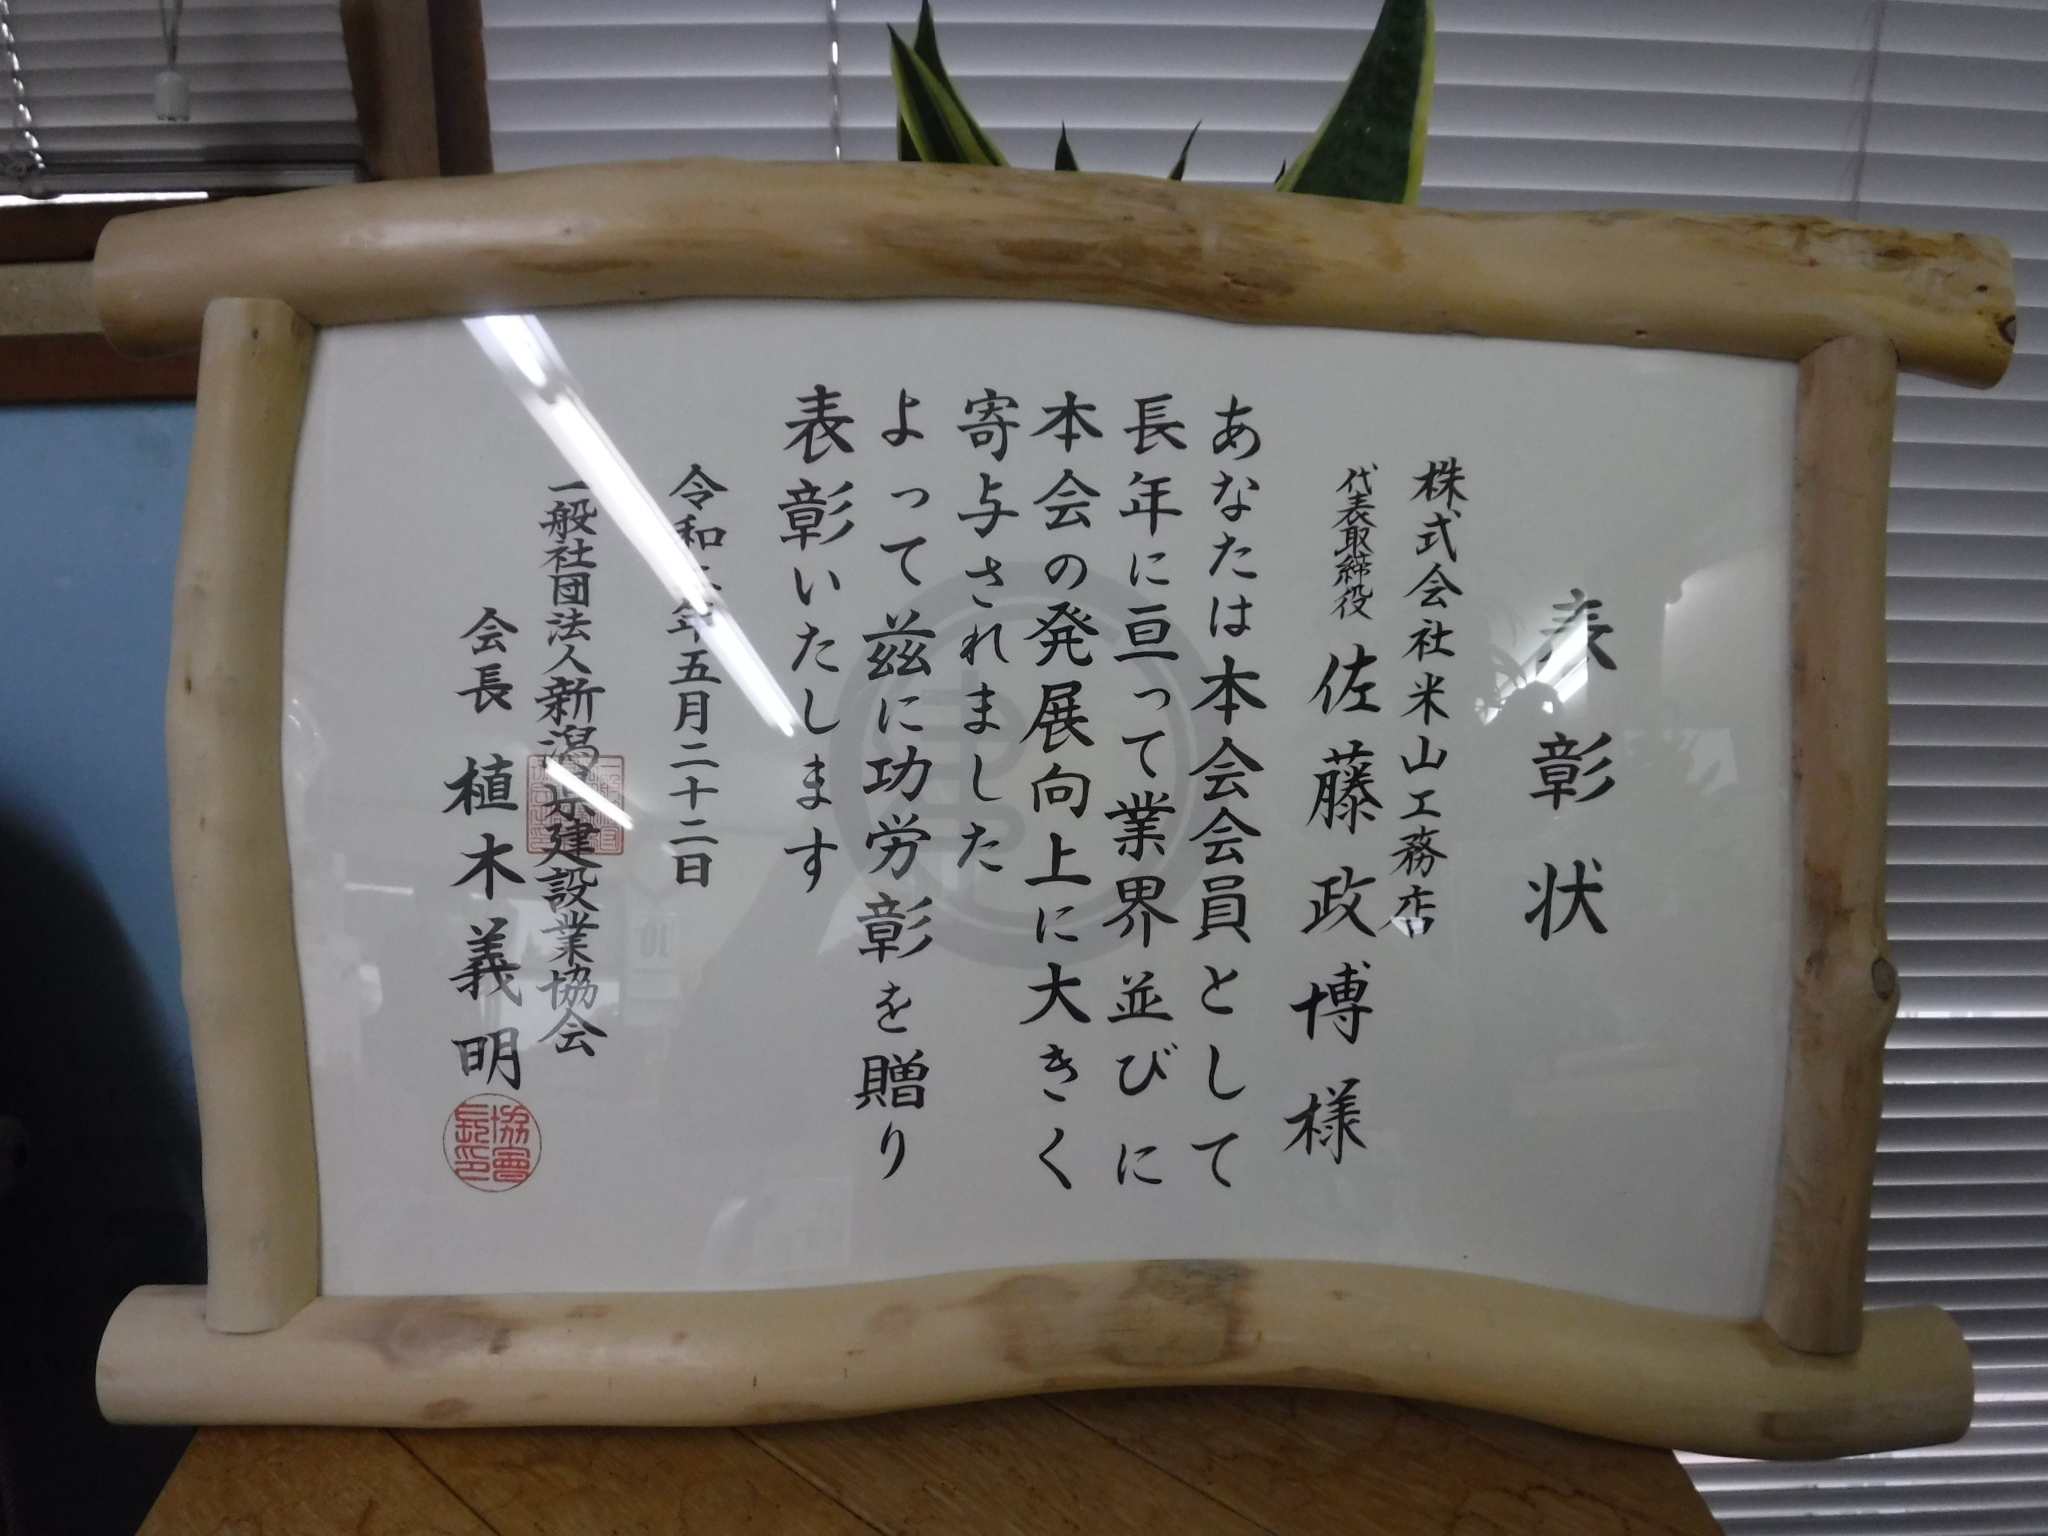 表彰状
株式会社米山工務店
代表取締役 佐藤政博様
あなたは本会会員として
長年に亘って業界並びに
本会の発展向上に大きく
寄与されました
よって茲に功労彰を贈り
表彰いたします
令和 年五月二十二日
一般社団法人新潟県建設業協会
会長 植木義明
協會長印